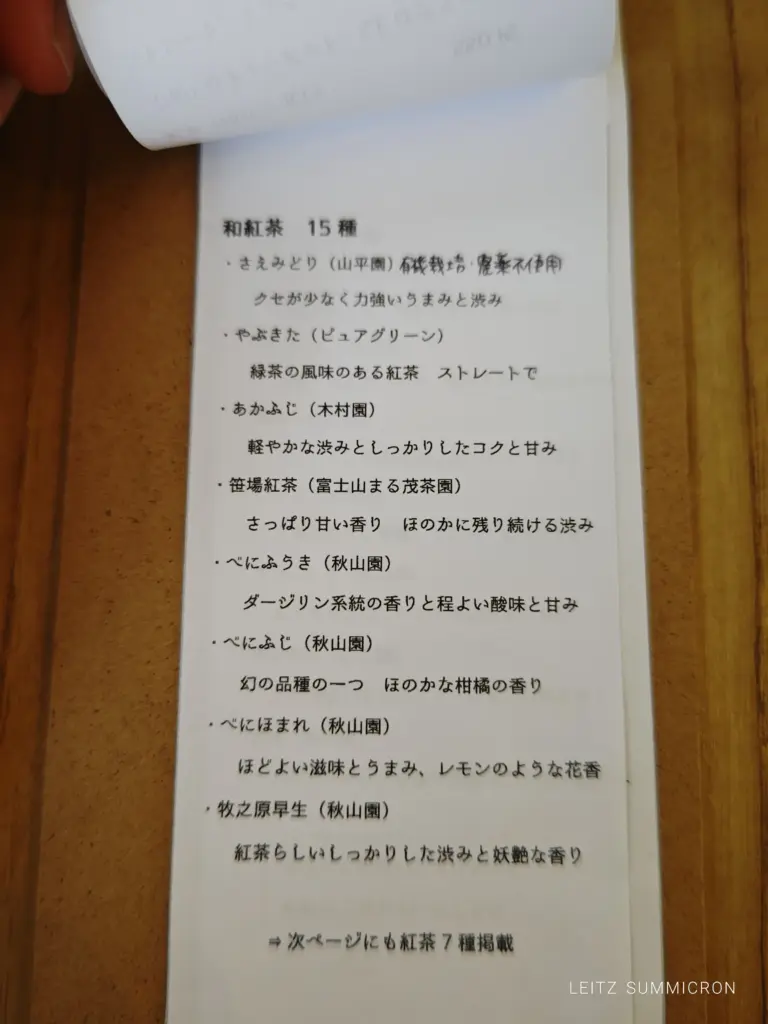 和紅茶　15種
・さえみどり（山平園）有機栽培・農薬不使用
クセが少なく力強いうまみと渋み
・やぶきた（ピュアグリーン）
緑茶の風味のある紅茶　ストレートで
・あかふじ（木村園）
軽やかな渋みとしっかりしたコクと甘み
・笹場紅茶（富士山まる茂茶園）
さっぱり甘い香り　ほのかに残り続ける渋み
・べにふうき（秋山園）
ダージリン系統の香りと程よい酸味と甘み
・べにふじ（秋山園）
幻の品種の一つ　ほのかな柑橘の香り
・べにほまれ（秋山園）
ほどよい滋味とうまみ、レモンのような花香
・牧之原早生（秋山園）
紅茶らしいしっかりした渋みと妖艶な香り
⇒次ページにも紅茶7種掲載
LEITZ SUMMICRON